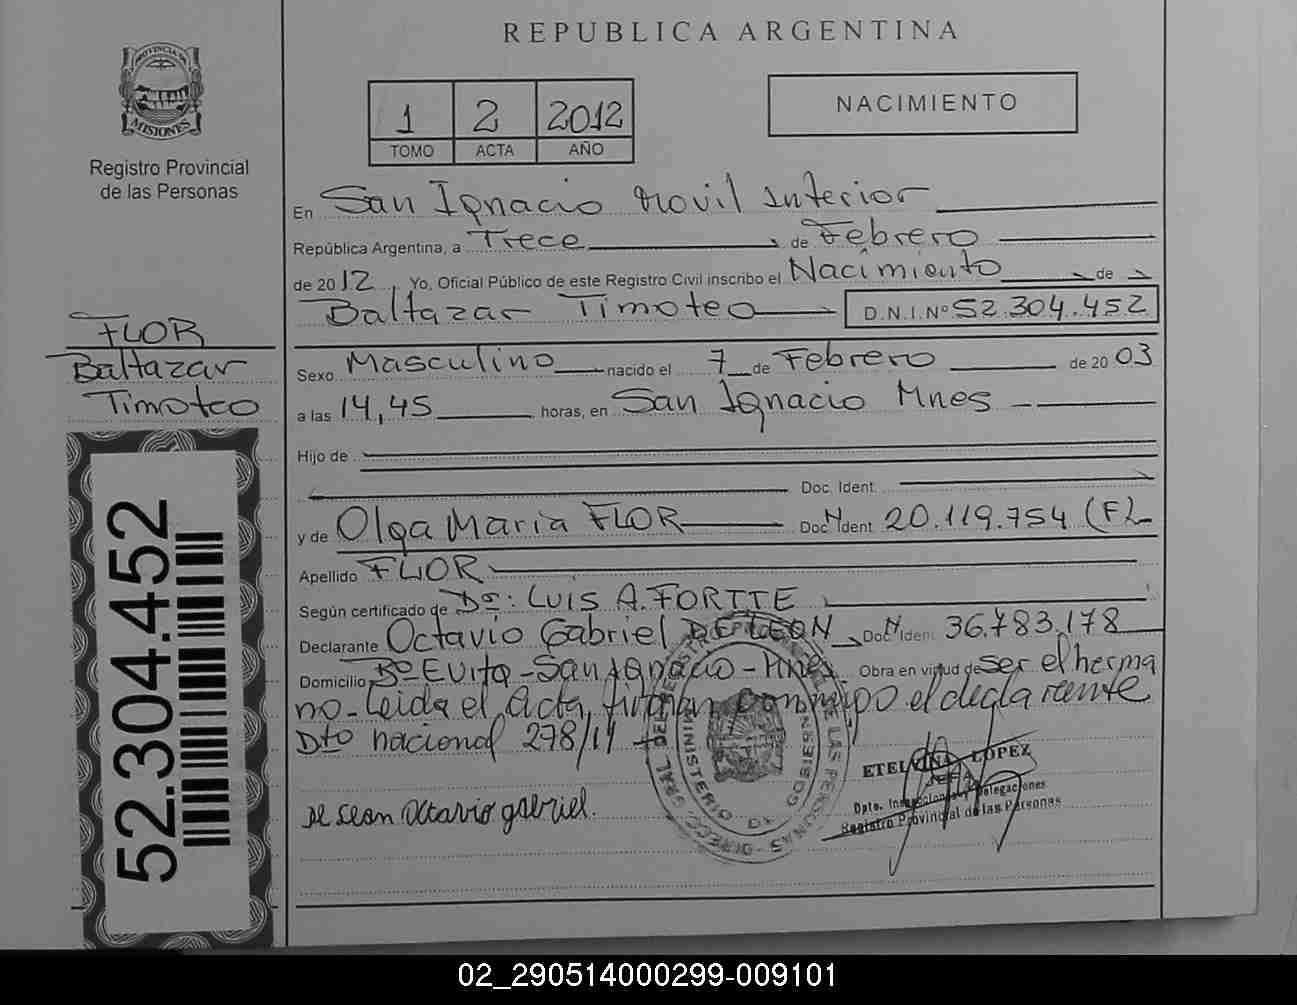 REPUBLICA ARGENTINA
PROVINCIA DE
MISIONES
Registro Provincial
de las Personas
1 2 2012
TOMO ACTA AÑO
NACIMIENTO
En San Ignacio Movil Interior
República Argentina, a Trece de Febrero
de 2012, Yo, Oficial Público de este Registro Civil inscribo el Nacimiento de
Baltazar Timoteo D.N.I. Nº 52.304.452
FLOR
Baltazar
Timoteo
Sexo Masculino nacido el 7 de Febrero de 2003
a las 14,45 horas, en San Ignacio Mnes
Hijo de
Doc. Ident.
y de Olga Maria FLOR Doc N Ident. 20.119.754 (F)
Apellido FLOR
Según certificado de Dr: LUIS A. FORTTE
Declarante Octavio Gabriel DE LEON Doc N Iden. 36.783.178
Domicilio Bº Evita - San Ignacio - Mnes Obra en virtud de ser el herma
no - Leida el Acta, firman conmigo el declarante
Dto nacional 278/11
De Leon Octavio gabriel.
MINISTERIO DE GOBIERNO
ETELVINA LOPEZ
JEFA
Dpto. Inspecciones y Delegaciones
Registro Provincial de las Personas
52.304.452
02_290514000299-009101